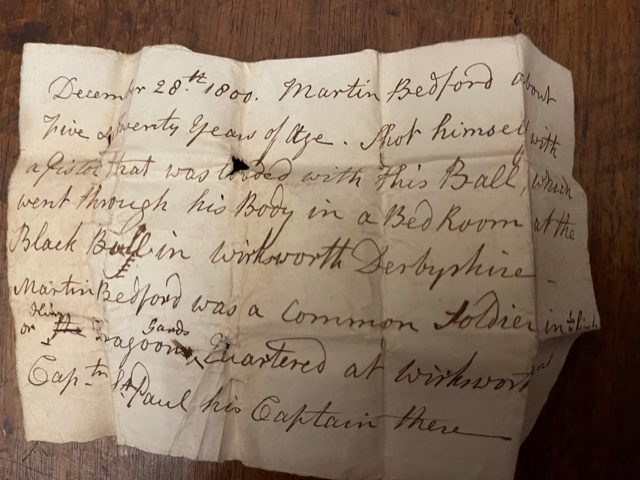 December 28.th 1800. Martin Bedford about
Five & Twenty Years of Age. Shot himself with
a Pistol that was loaded with this Ball, which
went through his Body in a Bed Room at the
Black Bull in Wirksworth Derbyshire
Martin Bedford was a Common Soldier in
or Kings Dragoon Gards Quartered at Wirksworth
Cap.tn St Paul his Captain there